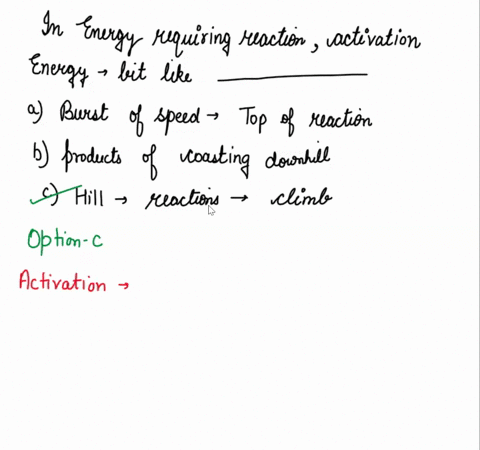 In Energy requiring reaction, activation
Energy → bit like __________
a) Burst of speed → Top of reaction
b) products of coasting downhill
c) Hill → reactions → climb
Option-c
Activation →